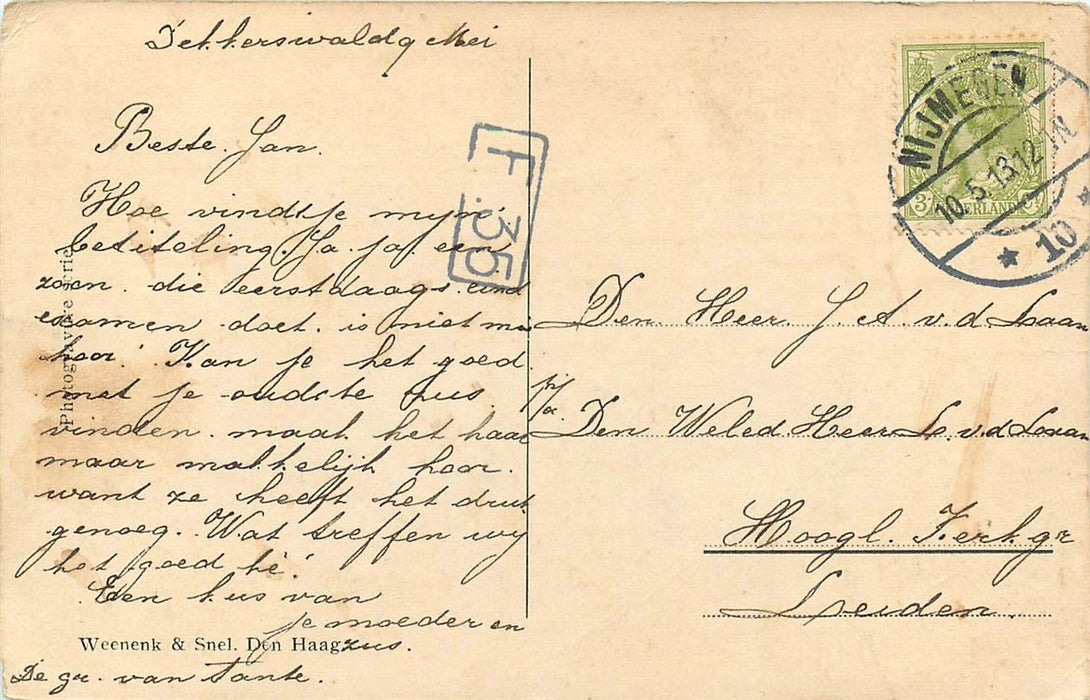 Dekkerswald 9 Mei
Beste Jan.
Hoe vindt je mijn
betiteling. Ja ja een
zoon die eerstdaags eind
examen doet is niet min
hoor! Kan je het goed
met je oudste zus
vinden. maak het haar
maar makkelijk hoor.
want ze heeft het druk
genoeg. Wat treffen wij
het goed hè!
Een kus van
je moeder en
zus.
De gr. van tante.
Photogravure serie
Weenenk & Snel. Den Haag
F. 35
NIJMEGEN
10.5.13.12-1N
10
NEDERLAND
Den Heer J. A. v. d. Laan
p/a
Den Weled Heer L. v. d. Laan
Hoogl. Kerk.gr
Leiden.